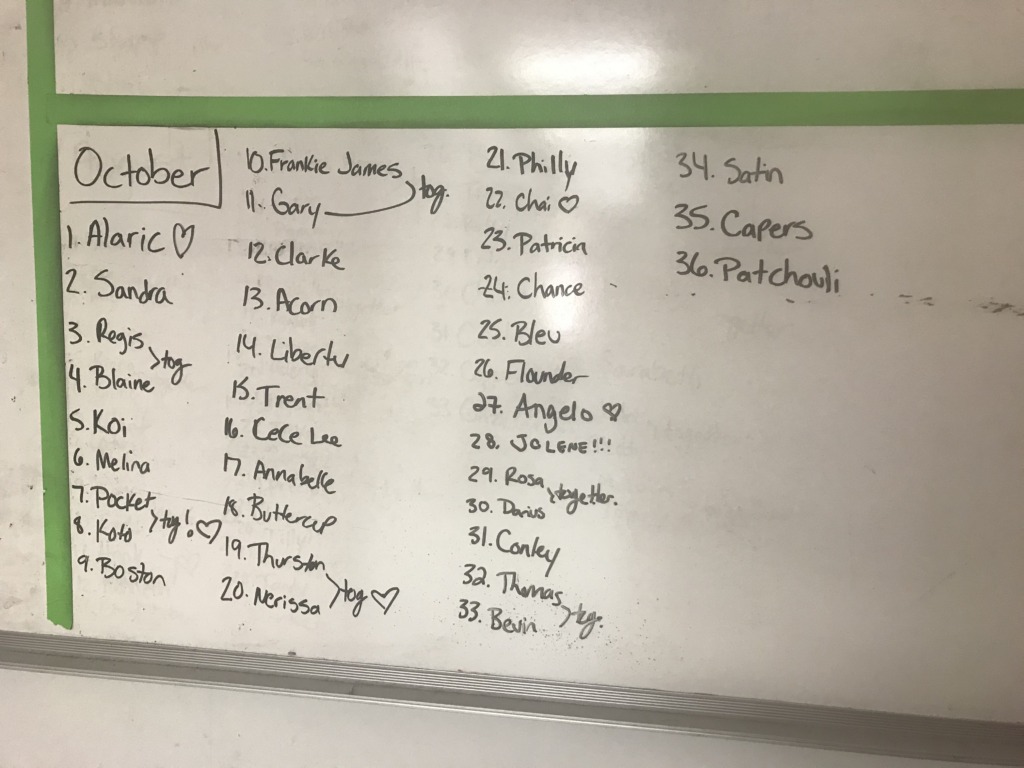 October
1. Alaric ♡
2. Sandra
3. Regis
4. Blaine >tog
5. Koi
6. Melina
7. Pocket
8. Koto >tog! ♡
9. Boston
10. Frankie James
11. Gary tog.
12. Clarke
13. Acorn
14. Liberty
15. Trent
16. CeCe Lee
17. Annabelle
18. Buttercup
19. Thurston
20. Nerissa >tog ♡
21. Philly
22. Chai ♡
23. Patricia
24. Chance
25. Bleu
26. Flounder
27. Angelo ♡
28. JOLENE!!!
29. Rosa
30. Darius >together.
31. Conley
32. Thomas
33. Bevin >tog.
34. Satin
35. Capers
36. Patchouli